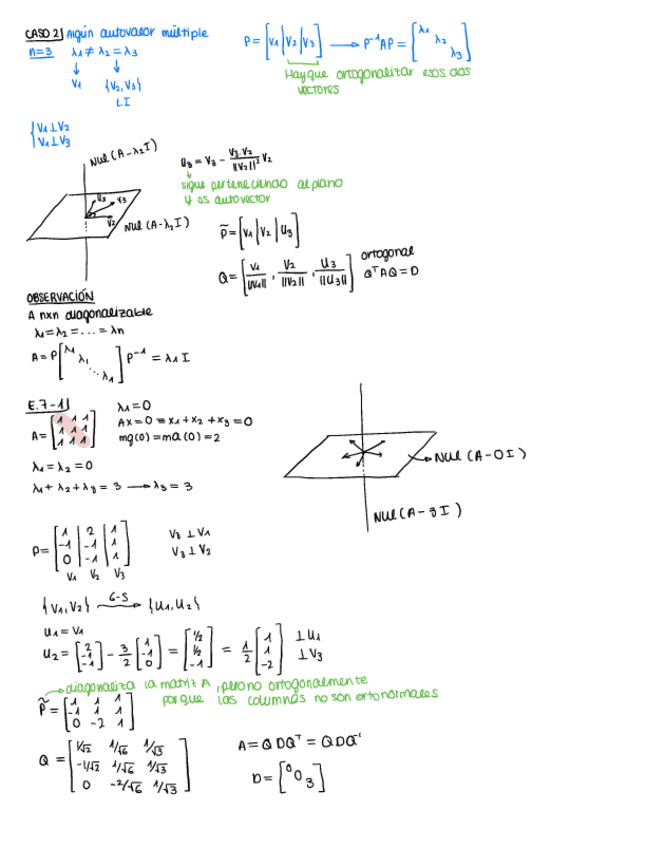 CASO 2| Algún autovalor múltiple
n=3 λ1 ≠ λ2 = λ3
↓ ↓
V1 {V2, V3}
LI
P = [V1 | V2 | V3] → P⁻¹AP = [λ1 λ2 λ3]
Hay que ortogonalizar esos dos
vectores
{V1 ⊥ V2
V1 ⊥ V3
Nul (A-λ2I)
u3 V3
V2
Nul (A-λ2I)
u3 = V3 - (V3·V2 / ||V2||²) V2
sigue perteneciendo al plano
y es autovector
P̃ = [V1 | V2 | U3]
Q = [V1/||V1||, V2/||V2||, U3/||U3||] ortogonal
QᵀAQ = D
OBSERVACIÓN
A nxn diagonalizable
λ1 = λ2 = ... = λn
A = P [λ1 λ1 ... λ1] P⁻¹ = λ1 I
E.7-1|
A = [1 1 1
1 1 1
1 1 1]
λ1 = 0
AX = 0 = X1 + X2 + X3 = 0
mg(0) = ma(0) = 2
λ1 = λ2 = 0
λ1 + λ2 + λ3 = 3 → λ3 = 3
Nul (A-0I)
Nul (A-3I)
P = [1 | 2 | 1
-1 | -1 | 1
0 | -1 | 1]
V1 V2 V3
V3 ⊥ V1
V3 ⊥ V2
{V1, V2} G-S → {U1, U2}
U1 = V1
U2 = [2 -1 -1] - 3/2 [1 -1 0] = [1/2 1/2 -1] = 1/2 [1 1 -2] ⊥ U1
⊥ V3
diagonaliza la matriz A, pero no ortogonalmente
porque las columnas no son ortonormales
P̃ = [1 1 1
-1 1 1
0 -2 1]
Q = [1/√2 1/√6 1/√3
-1/√2 1/√6 1/√3
0 -2/√6 1/√3]
A = QDQᵀ = QDQ⁻¹
D = [0 0 3]